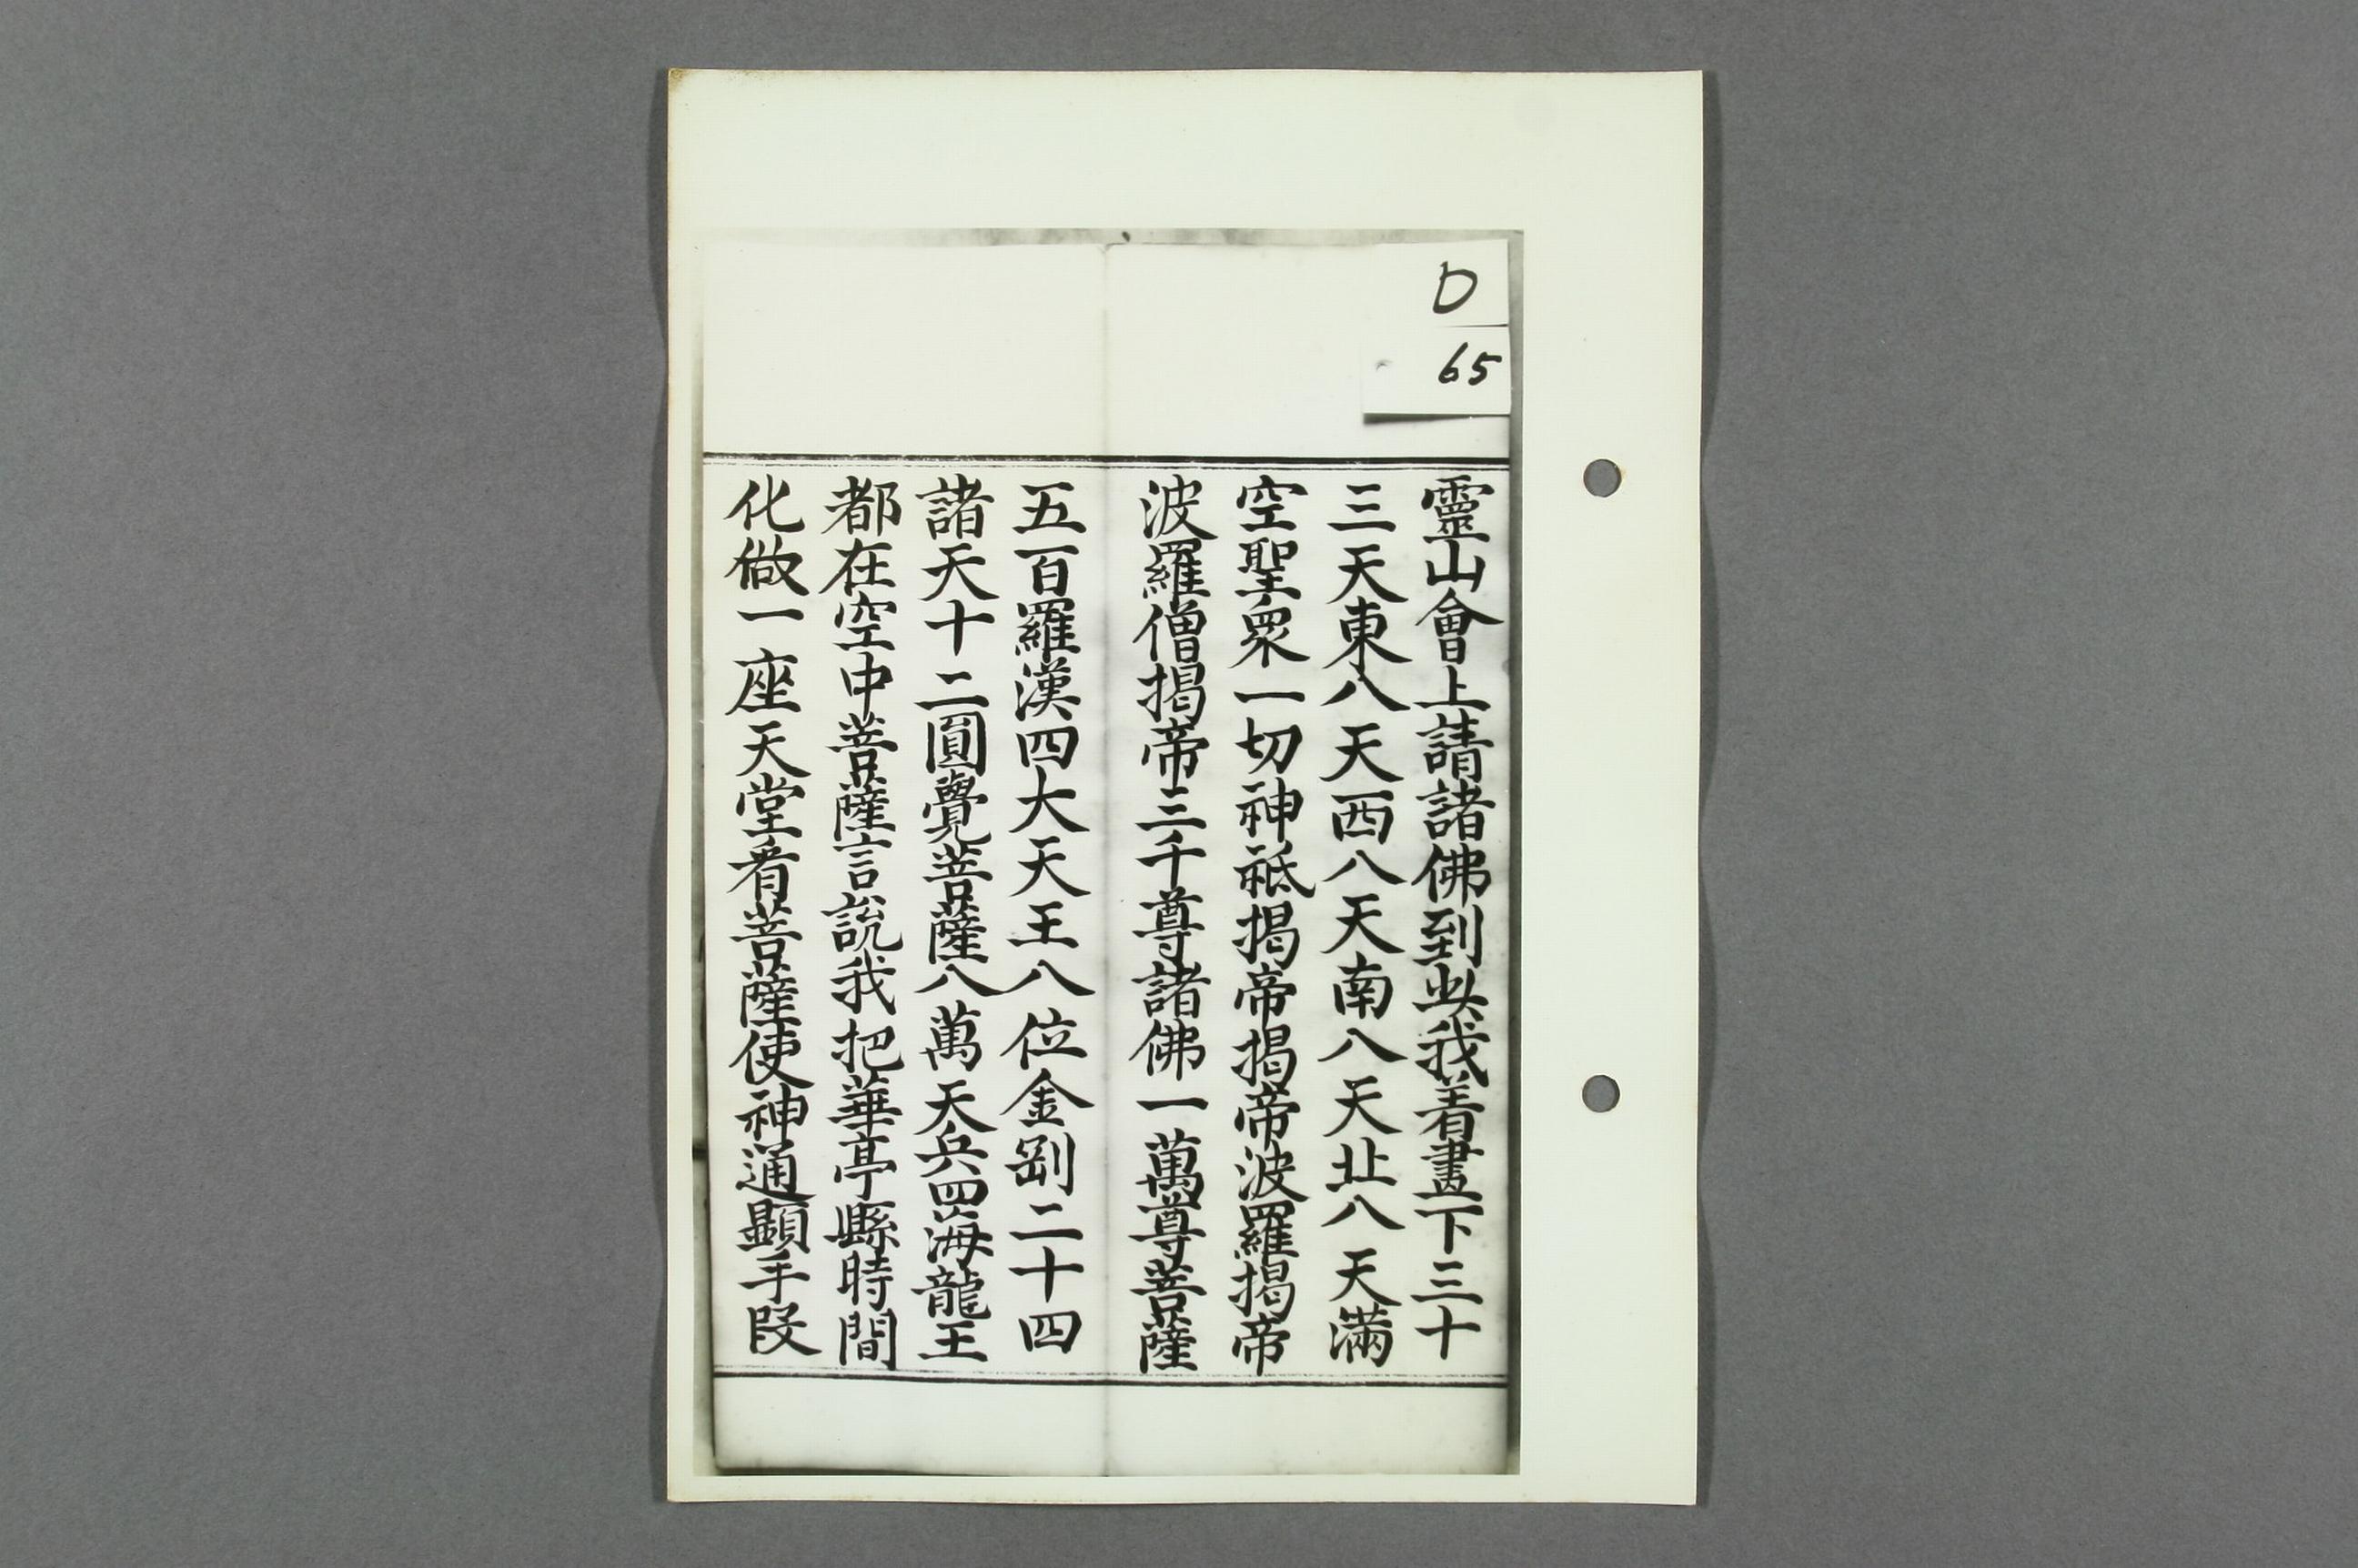 D
65
靈山會上請諸佛到此我着畫下三十
三天東八天西八天南八天北八天滿
空聖衆一切神祇揭帝揭帝波羅揭帝
波羅僧揭帝三千尊諸佛一萬尊菩薩
五百羅漢四大天王八位金剛二十四
諸天十二圓覺菩薩八萬天兵四海龍王
都在空中菩薩言說我把華亭縣時間
化做一座天堂看菩薩使神通顯手段